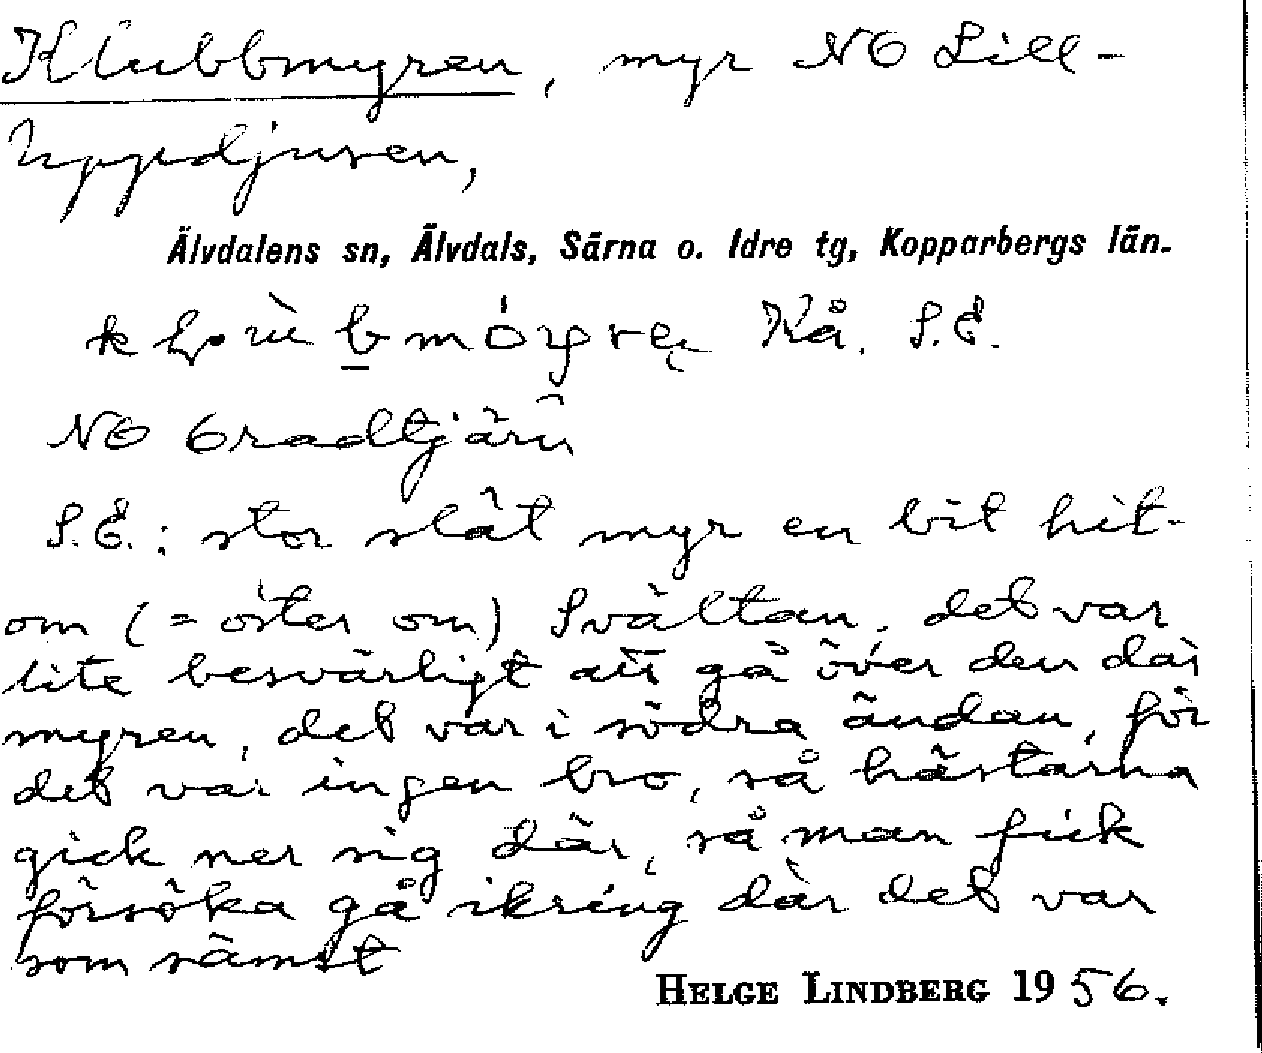 Klubbmyren, myr NO Lill-
uppdjusen,
Älvdalens sn, Älvdals, Särna o. Idre tg, Kopparbergs län.
Kå. S.E.
NO Gradtjärn
S.E.: stor slät myr en bit hit-
om (= öster om) Svältan, det var
lite besvärligt att gå över den där
myren, det var i södra ändan, för
det var ingen bro, så hästarna
gick ner sig där, så man fick
försöka gå ikring där det var
som sämst
HELGE LINDBERG 1956.